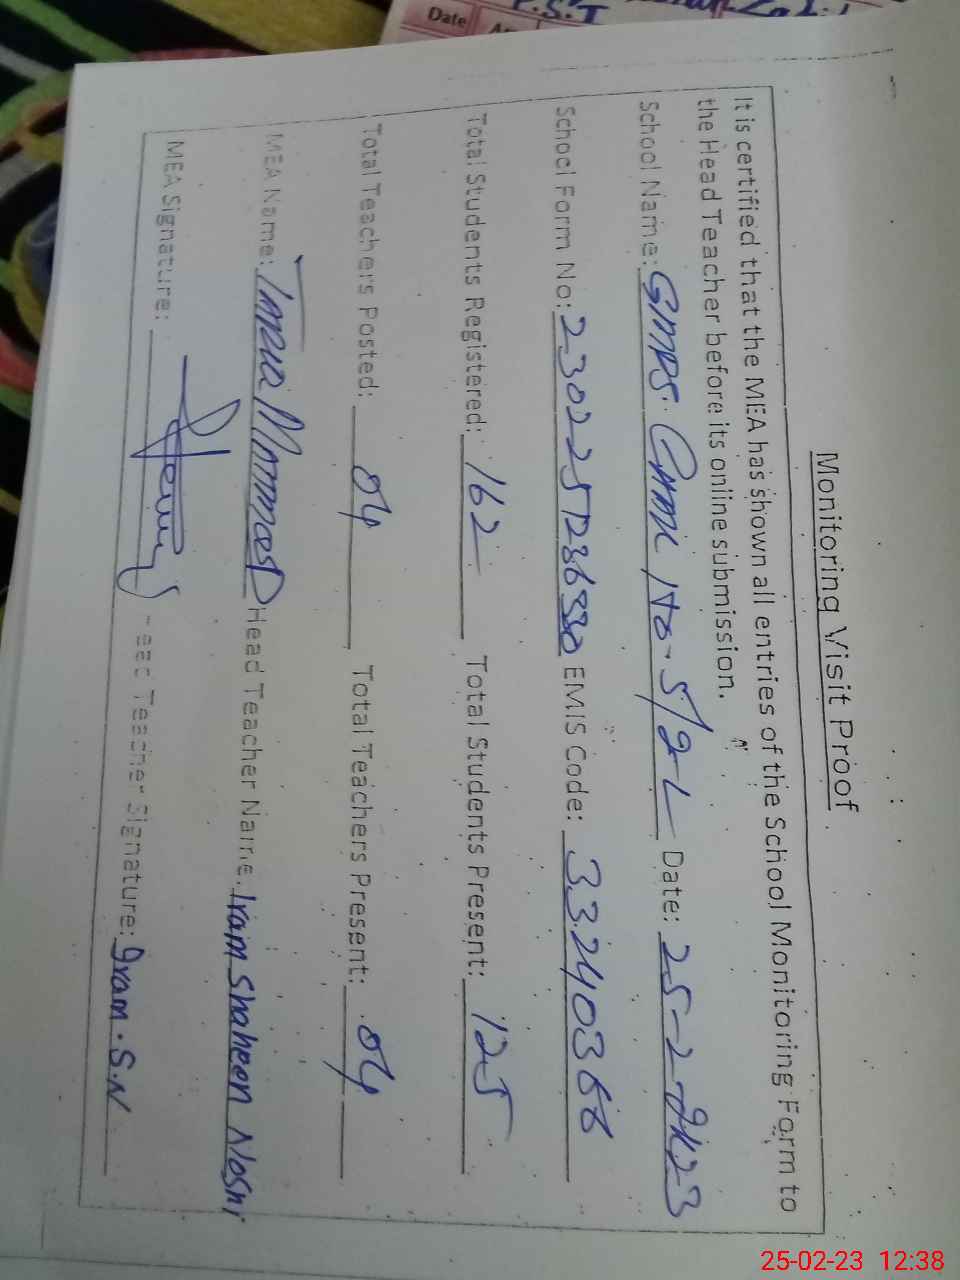 Date
Monitoring Visit Proof
It is certified that the MEA has shown all entries of the School Monitoring Form to
the Head Teacher before its online submission.
School Name: GMPS. 1to-5/2-L Date: 25-2-2K23
School Form No: EMIS Code: 33240366
Total Students Registered: 162 Total Students Present: 125
Total Teachers Posted: 04 Total Teachers Present: 04
MEA Name: Head Teacher Name: Iram Shaheen Noshi
MEA Signature: Head Teacher Signature: Iram.S.N
25-02-23 12:38